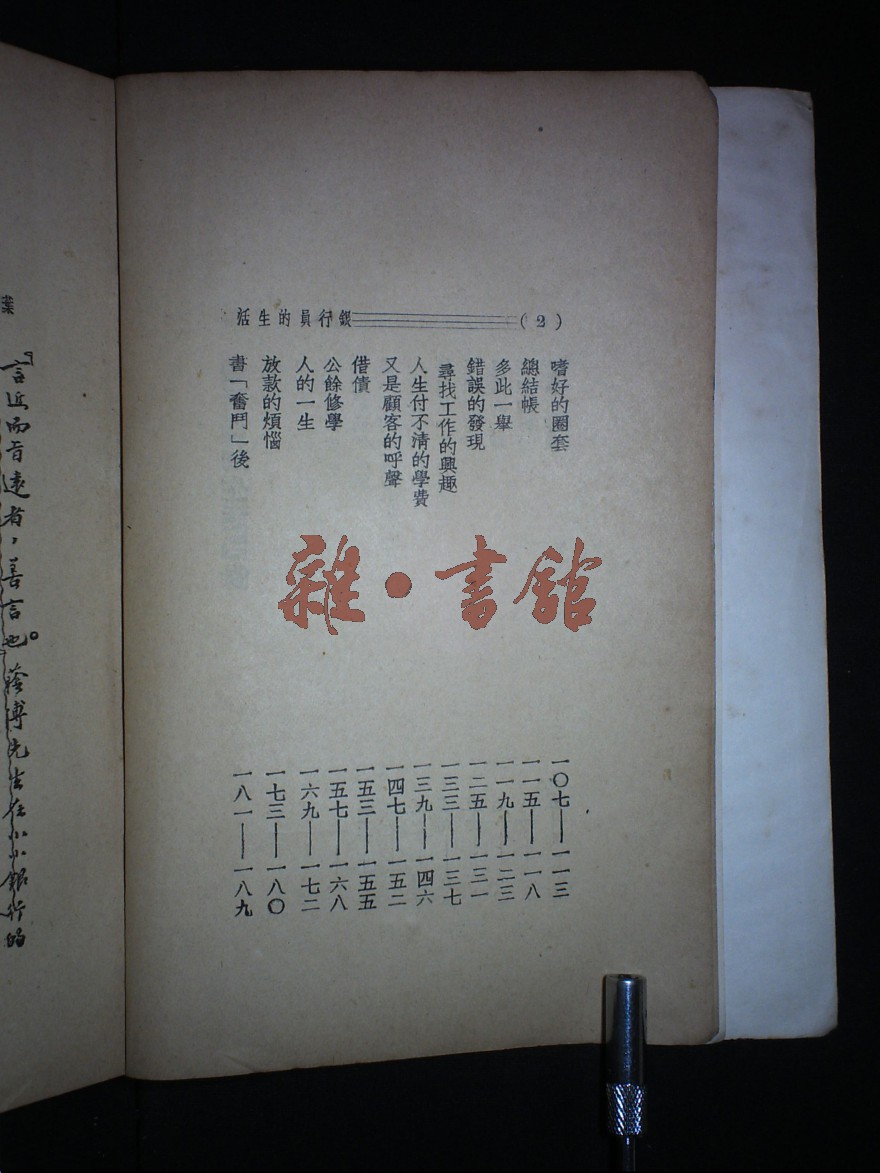 (2)銀行員的生活
嗜好的圈套 一〇七——一一三
總結帳 一一五——一一八
多此一舉 一一九——一二三
錯誤的發現 一二五——一三一
尋找工作的興趣 一三三——一三七
人生付不清的學費 一三九——一四六
又是顧客的呼聲 一四七——一五二
借債 一五三——一五五
公餘修學 一五七——一六八
人的一生 一六九——一七二
放款的煩惱 一七三——一八〇
書「奮鬥」後 一八一——一八九
雜·書館
業
「言近而旨遠者,善言也。」蔭溥先生在小小銀行的